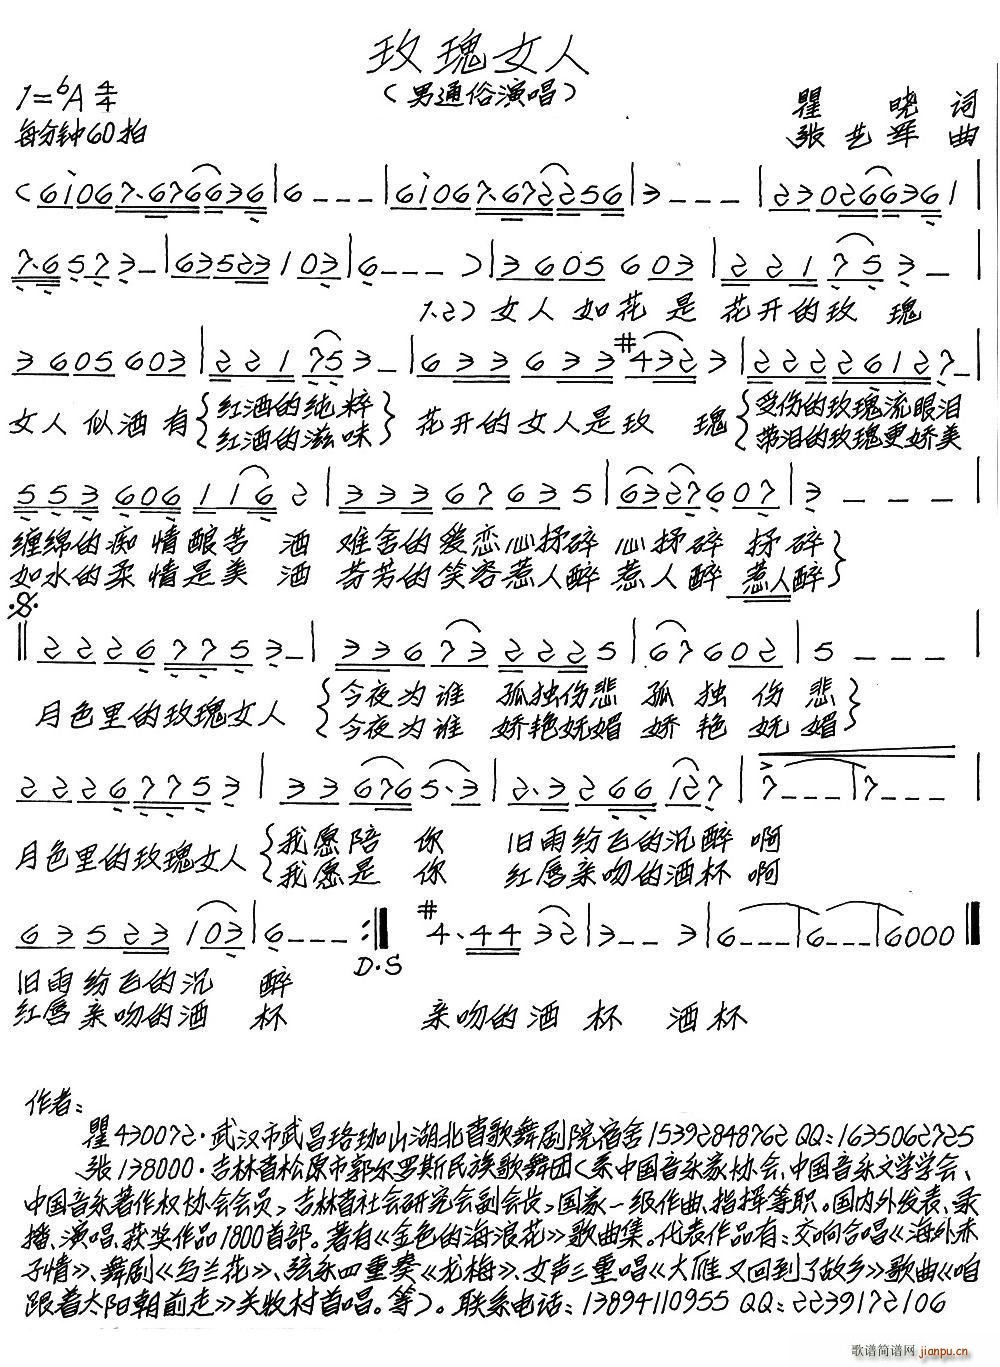 玫瑰女人
（男通俗演唱）
1=ᵇA 4/4
每分钟60拍
瞿 晓 词
张艺军 曲
(6i067.676636|6---|6i067.672256|3---|230266361|
7.6573-|63523103|6---)|3605603|221753-|
1.2) 女人如花是 花开的玫 瑰
3605603|221753-|633633#4323|22226127-|
女人似酒有{红酒的纯粹} 花开的女人是玫 瑰{受伤的玫瑰流眼泪
{红酒的滋味} {带泪的玫瑰更娇美
5536061162|33367635|6327607|3---|
缠绵的痴情酿苦 酒 难舍的爱恋心揉碎 心揉碎 揉碎}
如水的柔情是美 酒 芬芳的笑容惹人醉 惹人醉 惹人醉}
22267753-|336732225|67602|5---|
月色里的玫瑰女人 {今夜为谁 孤独伤悲 孤独伤悲}
{今夜为谁 娇艳妩媚 娇艳妩媚}
22267753|336765.3|2.3266127|7---|7---|
月色里的玫瑰女人 {我愿陪 你 旧雨纷飞的沉醉 啊
{我愿是 你 红唇亲吻的酒杯 啊
63523103|6---:‖ #4.4432|3--3|6---|6---|6000‖
D.S
旧雨纷飞的沉 醉
红唇亲吻的酒 杯 亲吻的酒 杯 酒杯
作者：
瞿430072.武汉市武昌珞珈山湖北省歌舞剧院宿舍15392848762 QQ：1635062725
张138000.吉林省松原市郭尔罗斯民族歌舞团（系中国音乐家协会、中国音乐文学学会、
中国音乐著作权协会会员，吉林省社会研究会副会长，国家一级作曲、指挥等职。国内外发表、录
播、演唱、获奖作品1800首部。著有《金色的海浪花》歌曲集。代表作品有：交响合唱《海外赤
子情》、舞剧《乌兰花》、弦乐四重奏《龙梅》、女声三重唱《大雁又回到了故乡》歌曲《咱
跟着太阳朝前走》关牧村首唱。等）。联系电话：13894110955 QQ：2239172106
歌谱简谱网
jianpu.cn